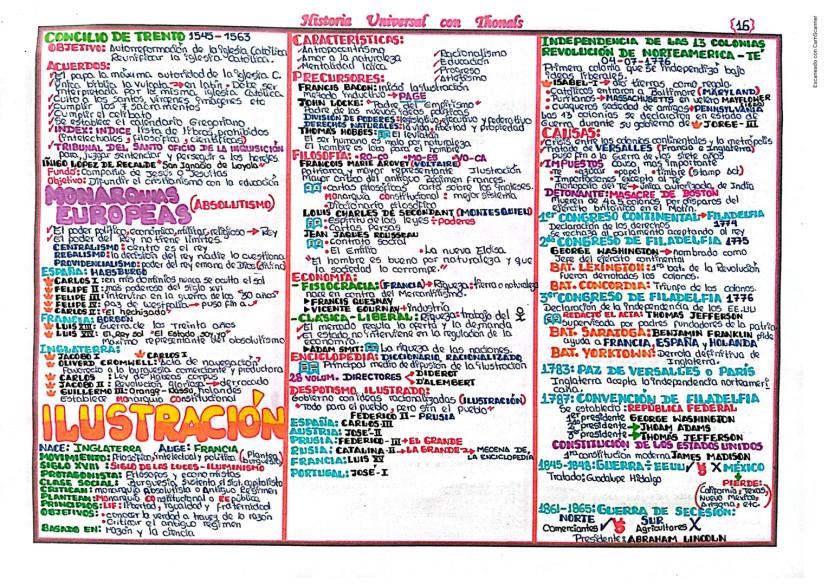 Historia Universal con Thonals
{16}
CONCILIO DE TRENTO 1545-1563
OBJETIVO: Autorreformación de la iglesia Católica
Reunificar la iglesia católica.
ACUERDOS:
El papa la máxima autoridad de la iglesia C.
Única biblia la vulgata → en latín → Debe ser
interpretada por los miembros de la iglesia
Culto a los santos, vírgenes, imágenes etc
Cumplir los 7 sacramentos
Cumplir el celibato
Se establece el calendario Gregoriano
INDEX: INDICE lista de libros prohibidos
(intelectuales, filosóficos y científicos)
TRIBUNAL DEL SANTO OFICIO DE LA INQUISICIÓN
para, juzgar sentenciar y perseguir a los herejes.
IÑIGO LÓPEZ DE REGALDE "San Ignacio de Loyola"
Fundó: Compañía de Jesús o Jesuitas
Objetivo: Difundir el cristianismo con la educación
MONARQUIAS EUROPEAS (ABSOLUTISMO)
El poder político, económico, militar, religioso → Rey
el poder del Rey no tiene límites.
CENTRALISMO: centro es el rey
REGALISMO: la decisión del rey nadie lo cuestiona
PROVIDENCIALISMO: poder del rey emana de Dios
ESPAÑA: HABSBURGO
CARLOS I: en mis dominios nunca se oculta el sol
FELIPE II: más poderoso del siglo XVI
FELIPE III: Intervino en la guerra de los "30 años"
FELIPE IV: paz de Westfalia → puso fin a
CARLOS II: "El hechizado"
FRANCIA: BORBÓN
LUIS XIII: Guerra de los treinta años
LUIS XIV: El Rey sol "El Estado soy yo"
Máximo representante del absolutismo
INGLATERRA:
JACOBO I CARLOS I
OLIVERD CROMWELL: Acta de navegación
Favoreció a la burguesía comerciante y productora
CARLOS : Ley de Habeas corpus
JACOBO II: Revolución Gloriosa → derrocado
GUILLERMO III: Orange-Nassau, Holandés
Establece monarquía constitucional
ILUSTRACIÓN
NACE: INGLATERRA AUGE: FRANCIA
MOVIMIENTO: Filosófico, intelectual y político (Plantea) (burguesía)
SIGLO XVIII: SIGLO DE LAS LUCES - ILUMINISMO
PROTAGONISTA: Filósofos y economistas
CLASE SOCIAL: Burguesía, sustenta el sist. capitalista
CRITICAN: monarquía absolutista o Antiguo Régimen
PLANTEAN: Monarquía constitucional o República
PRINCIPIOS: LIF: libertad, igualdad y fraternidad
OBJETIVOS: • conocer la verdad a traves de la razón
• Criticar el antiguo régimen
BASADO EN: razón y la ciencia
CARACTERÍSTICAS:
Antropocentrismo
Amor a la naturaleza
Mentalidad laica
Racionalismo
Educación
Progreso
Ateísmo
PRECURSORES:
FRANCIS BACON: inició la Ilustración
Método inductivo → PAGE
JOHN LOCKE: "Padre del Empirismo"
Padre de las nuevas ideas políticas
DIVISIÓN DE PODERES: legislativo, ejecutivo y federativo
DERECHOS NATURALES: la vida, libertad y propiedad
THOMAS HOBBES: El Leviatán
El ser humano es malo por naturaleza
El hombre es lobo para el hombre
FILOSOFÍA: RO-CO MO-ES VO-CA
FRANCOIS MARIE AROVET (VOLTAIRE)
Patriarca y mayor representante Ilustración
Mayor crítico del antiguo Régimen Francés
• cartas filosóficas carta sobre los ingleses.
Monarquía constitucional: mejor sistema
• Diccionario filosófico
LOUIS CHARLES DE SECONDANT (MONTESQUIEU)
• Espíritu de las leyes → 3 poderes
• Cartas persas
JEAN JAQUES ROUSSEAU
• Contrato social
• El Emilio • La nueva Eloísa
"El hombre es bueno por naturaleza y que
la sociedad lo corrompe."
ECONOMÍA:
-FISIOCRACIA: (FRANCIA) → Riqueza: tierra o naturaleza
nace en contra del mercantilismo.
FRANCIS QUESNAY
VICENTE GOURNAY → industria
-CLÁSICA-LIBERAL: Riqueza: trabajo del
El mercado regula la oferta y la demanda
El estado no interviene en la regulación de la
economía
ADAM SMIT: La riqueza de las naciones.
ENCICLOPEDIA: DICCIONARIO, RACIONALIZADO
Principal medio de difusión de la ilustración
28 VOLUM. DIRECTORES → DIDEROT
D'ALEMBERT
DESPOTISMO, ILUSTRADO:
Gobierno con ideas racionalizadas (ILUSTRACIÓN)
"Todo para el pueblo, pero sin el pueblo"
FEDERICO II - PRUSIA
ESPAÑA: CARLOS III
AUSTRIA: JOSÉ-II
PRUSIA: FEDERICO-III → EL GRANDE
RUSIA: CATALINA-II → LA GRANDE → MECENA DE LA ENCICLOPEDIA
FRANCIA: LUIS XV
PORTUGAL: JOSÉ-I
INDEPENDENCIA DE LAS 13 COLONIAS
REVOLUCIÓN DE NORTEAMERICA - TÉ
04-07-1776
Primera colonia que se independizó bajo
ideas liberales.
ISABEL-I → dio tierras, como regalo
• Católicos entraron a Baltimore (MARYLAND)
• Puritanos → MASSACHUSETTS en velero MAYFLOWER
• Cuáqueros sociedad de amigos → PENNSYLVANIA
Las 13 colonias se declararon en estado de
Guerra durante su gobierno de → JORGE-III
CAUSAS:
Crisis entre las colonias continentales y la metrópolis
Tratado de VERSALLES (Francia e Inglaterra)
puso fin a la Guerra de los siete años
IMPUESTOS causa más importante
• Té • azúcar • papel • timbre (stamp act)
• Importaciones excepto al té
monopolio del té → única autorizada, de India
DETONANTE: MASACRE DE BOSTON
Mueren de 4 a 5 colonos, por disparos del
ejército británico en el Motín.
1er CONGRESO CONTINENTAL → FILADELFIA
Declaración de los derechos 1774
Se rechaza al parlamento aceptando al rey
2do CONGRESO DE FILADELFIA 1775
GEORGE WASHINGTON → nombrado como
Jefe del ejército continental.
BAT. LEXINGTON: 1ra bat. de la Revolución
Fueron derrotados los colonos.
BAT. CONCORDIA: Triunfo de los colonos.
3er CONGRESO DE FILADELFIA 1776
Declaración de la Independencia de los EE.UU
REDACTO EL ACTA: THOMAS JEFFERSON
Supervisada por padres fundadores de la patria
BAT. SARATOGA: BENJAMIN FRANKLIN pide
ayuda a FRANCIA, ESPAÑA y HOLANDA
BAT. YORKTOWN: Derrota definitiva de
Inglaterra.
1783: PAZ DE VERSALLES o PARÍS
Inglaterra acepta la independencia norteameri
cana.
1787: CONVENCIÓN DE FILADELFIA
Se estableció: REPÚBLICA FEDERAL
1er presidente GEORGE WASHINGTON
2do presidente → JHOAM ADAMS
3er presidente → THOMAS JEFFERSON
CONSTITUCIÓN DE LOS ESTADOS UNIDOS
1ra constitución moderna JAMES MADISON
1845-1848: GUERRA: EEUU ✓ VS X MÉXICO
Tratado: Guadalupe Hidalgo
PIERDE:
(California, Texas,
Nuevo México,
Arizona, etc.)
1861-1865: GUERRA DE SECESIÓN:
NORTE VS SUR
Comerciantes ✓ Agricultores X
Presidente: ABRAHAM LINCOLN
Escaneado con CamScanner